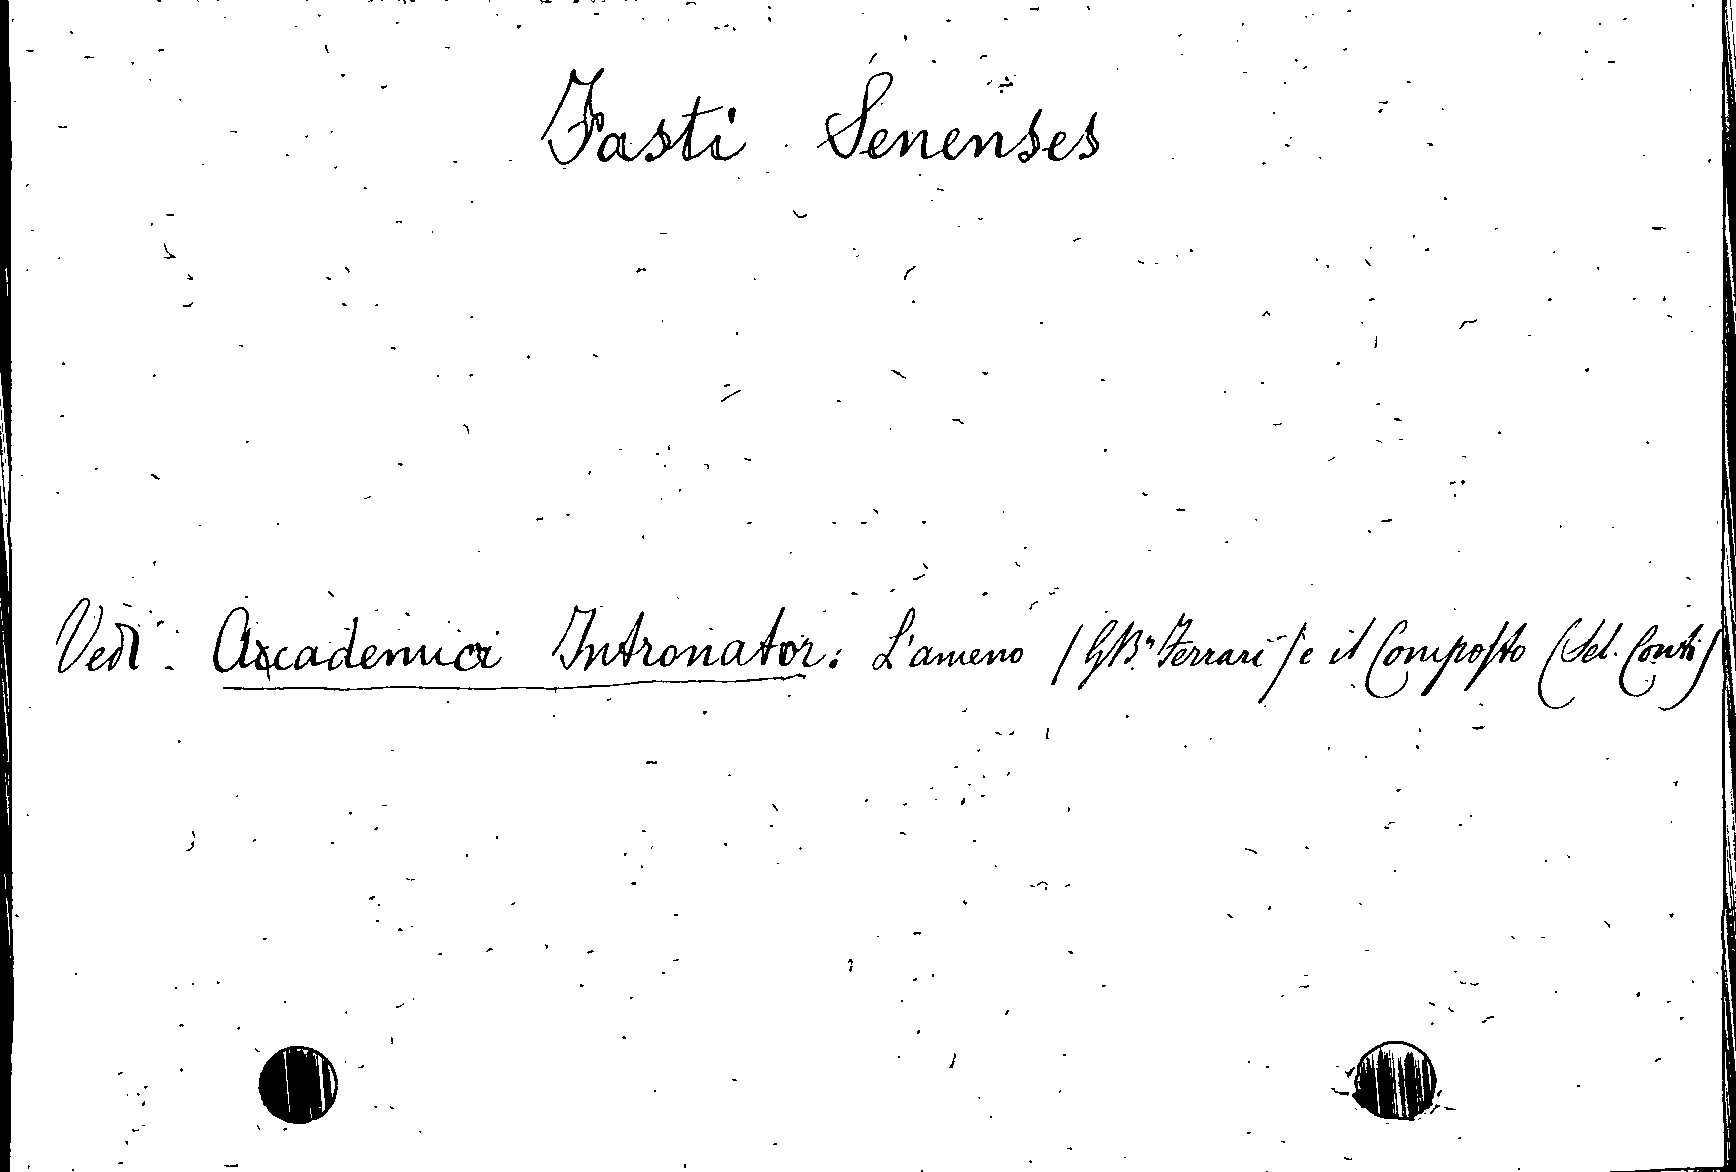 Fasti Senenses
Vedi: Accademici Intronator: L'ameno (G.B. Ferrari) e il Composto (Seb. Conti)